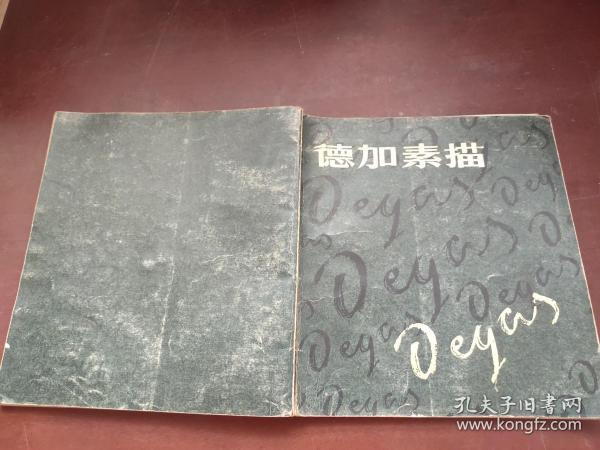 德加素描
Degas
Degas
Degas
Degas
Degas
Degas
Degas
孔夫子旧書网
www.kongfz.com